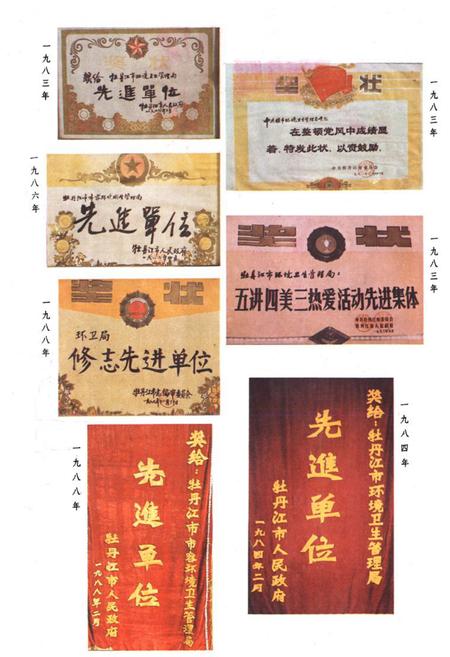 一九八三年
奖状
奖给 牡丹江市环境卫生管理局
先進單位
牡丹江市人民政府
一九八三年
奖状
在整顿党风中成绩显
著，特发此状，以资鼓励。
一九八六年
先進單位
牡丹江市人民政府
一九八三年
奖状
牡丹江市环境卫生管理局：
五讲四美三热爱活动先进集体
一九八八年
奖状
环卫局
修志先进单位
一九八八年
奖给：牡丹江市市容环境卫生管理局
先進单位
牡丹江市人民政府
一九八八年二月
一九八四年
奖给：牡丹江市环境卫生管理局
先進单位
牡丹江市人民政府
一九八四年二月